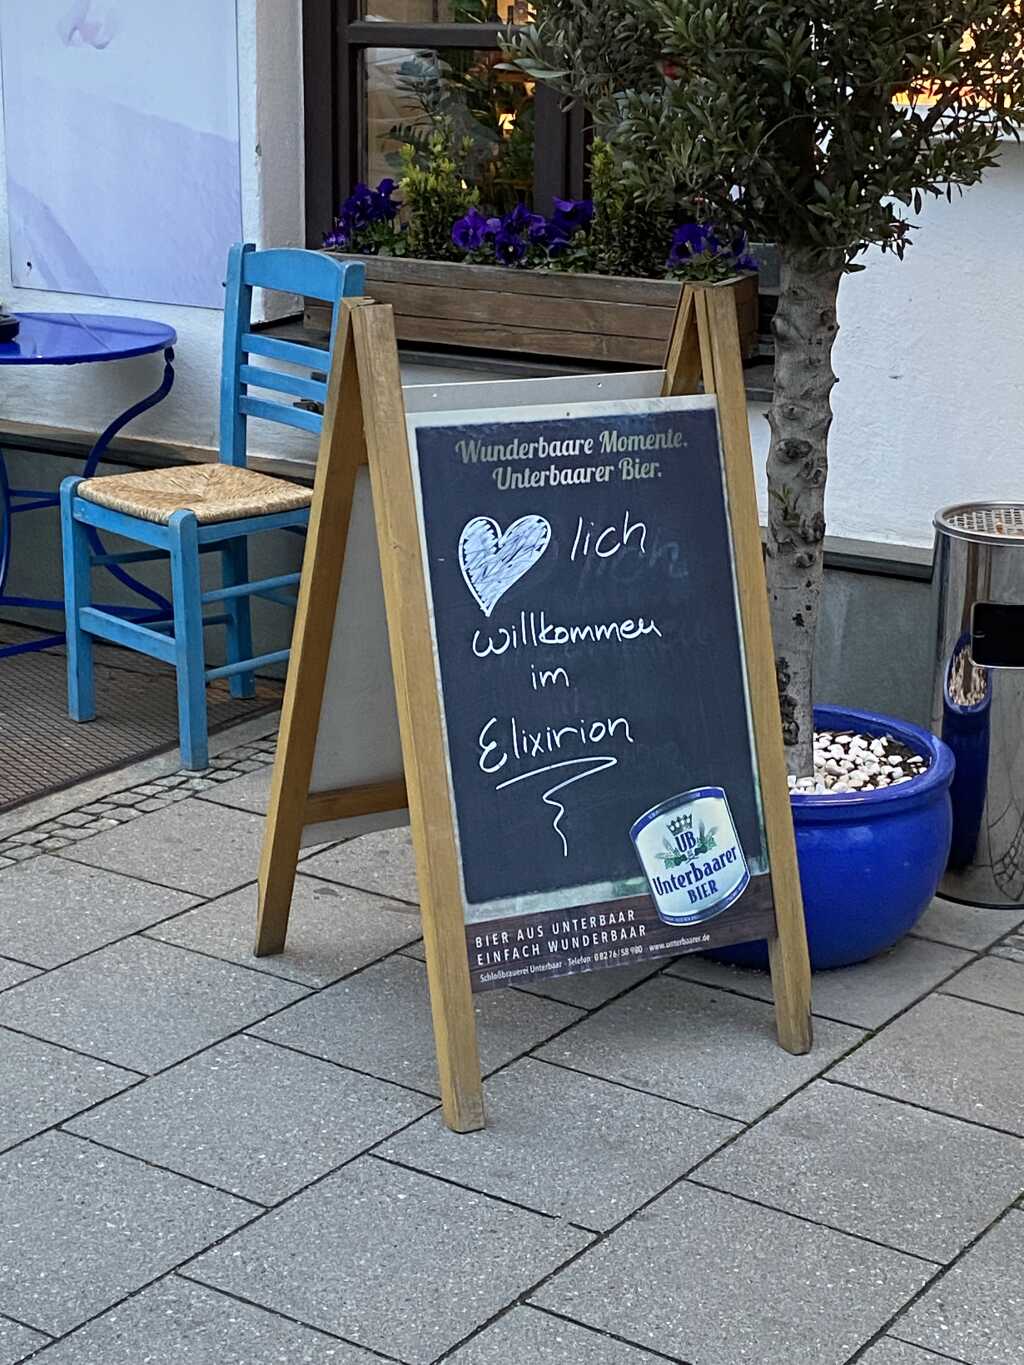 Wunderbaare Momente.
Unterbaarer Bier.
lich
willkommen
im
Elixirion
UB
Unterbaarer
BIER
BIER AUS UNTERBAAR
EINFACH WUNDERBAAR
Schloßbrauerei Unterbaar · Telefon 08276/58 980 · www.unterbaarer.de